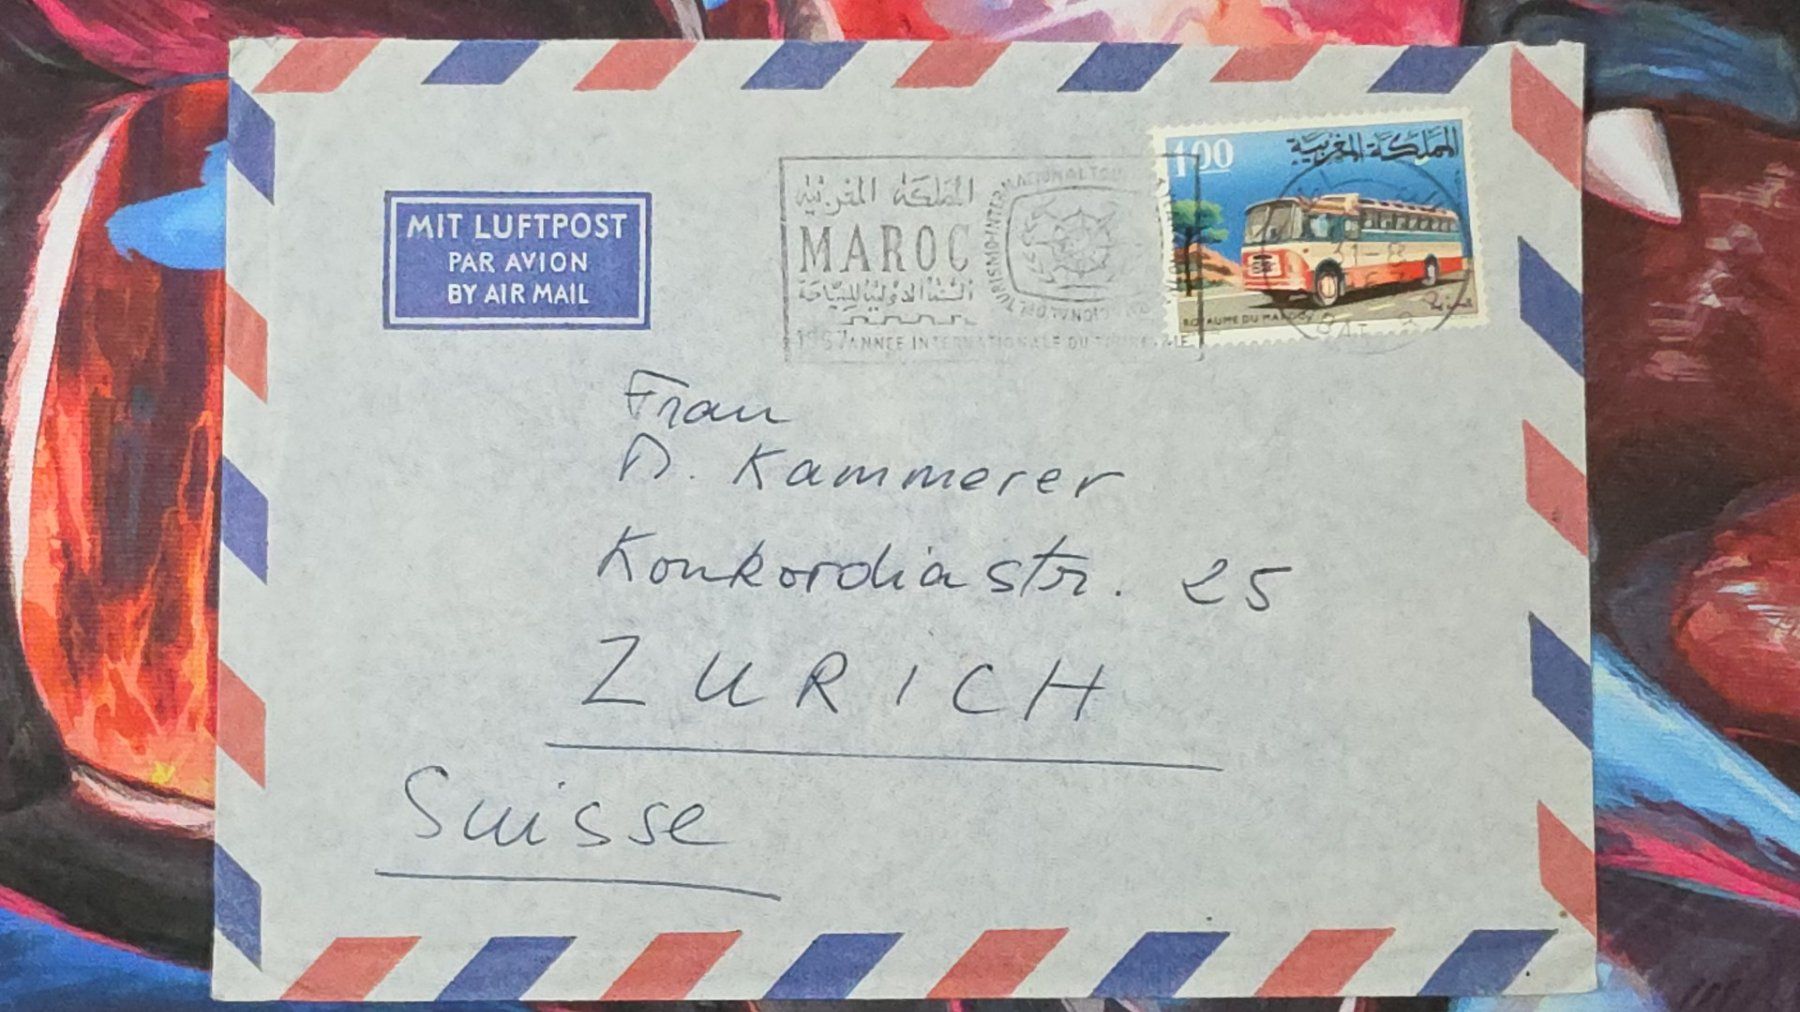 MIT LUFTPOST
PAR AVION
BY AIR MAIL
المملكة المغربية
MAROC
السنة الدولية للسياحة
1967 ANNEE INTERNATIONALE DU TOURISME
1.00
المملكة المغربية
البريد
ROYAUME DU MAROC
31-8
Frau
A. Kammerer
Konkordiastr. 25
ZURICH
Suisse